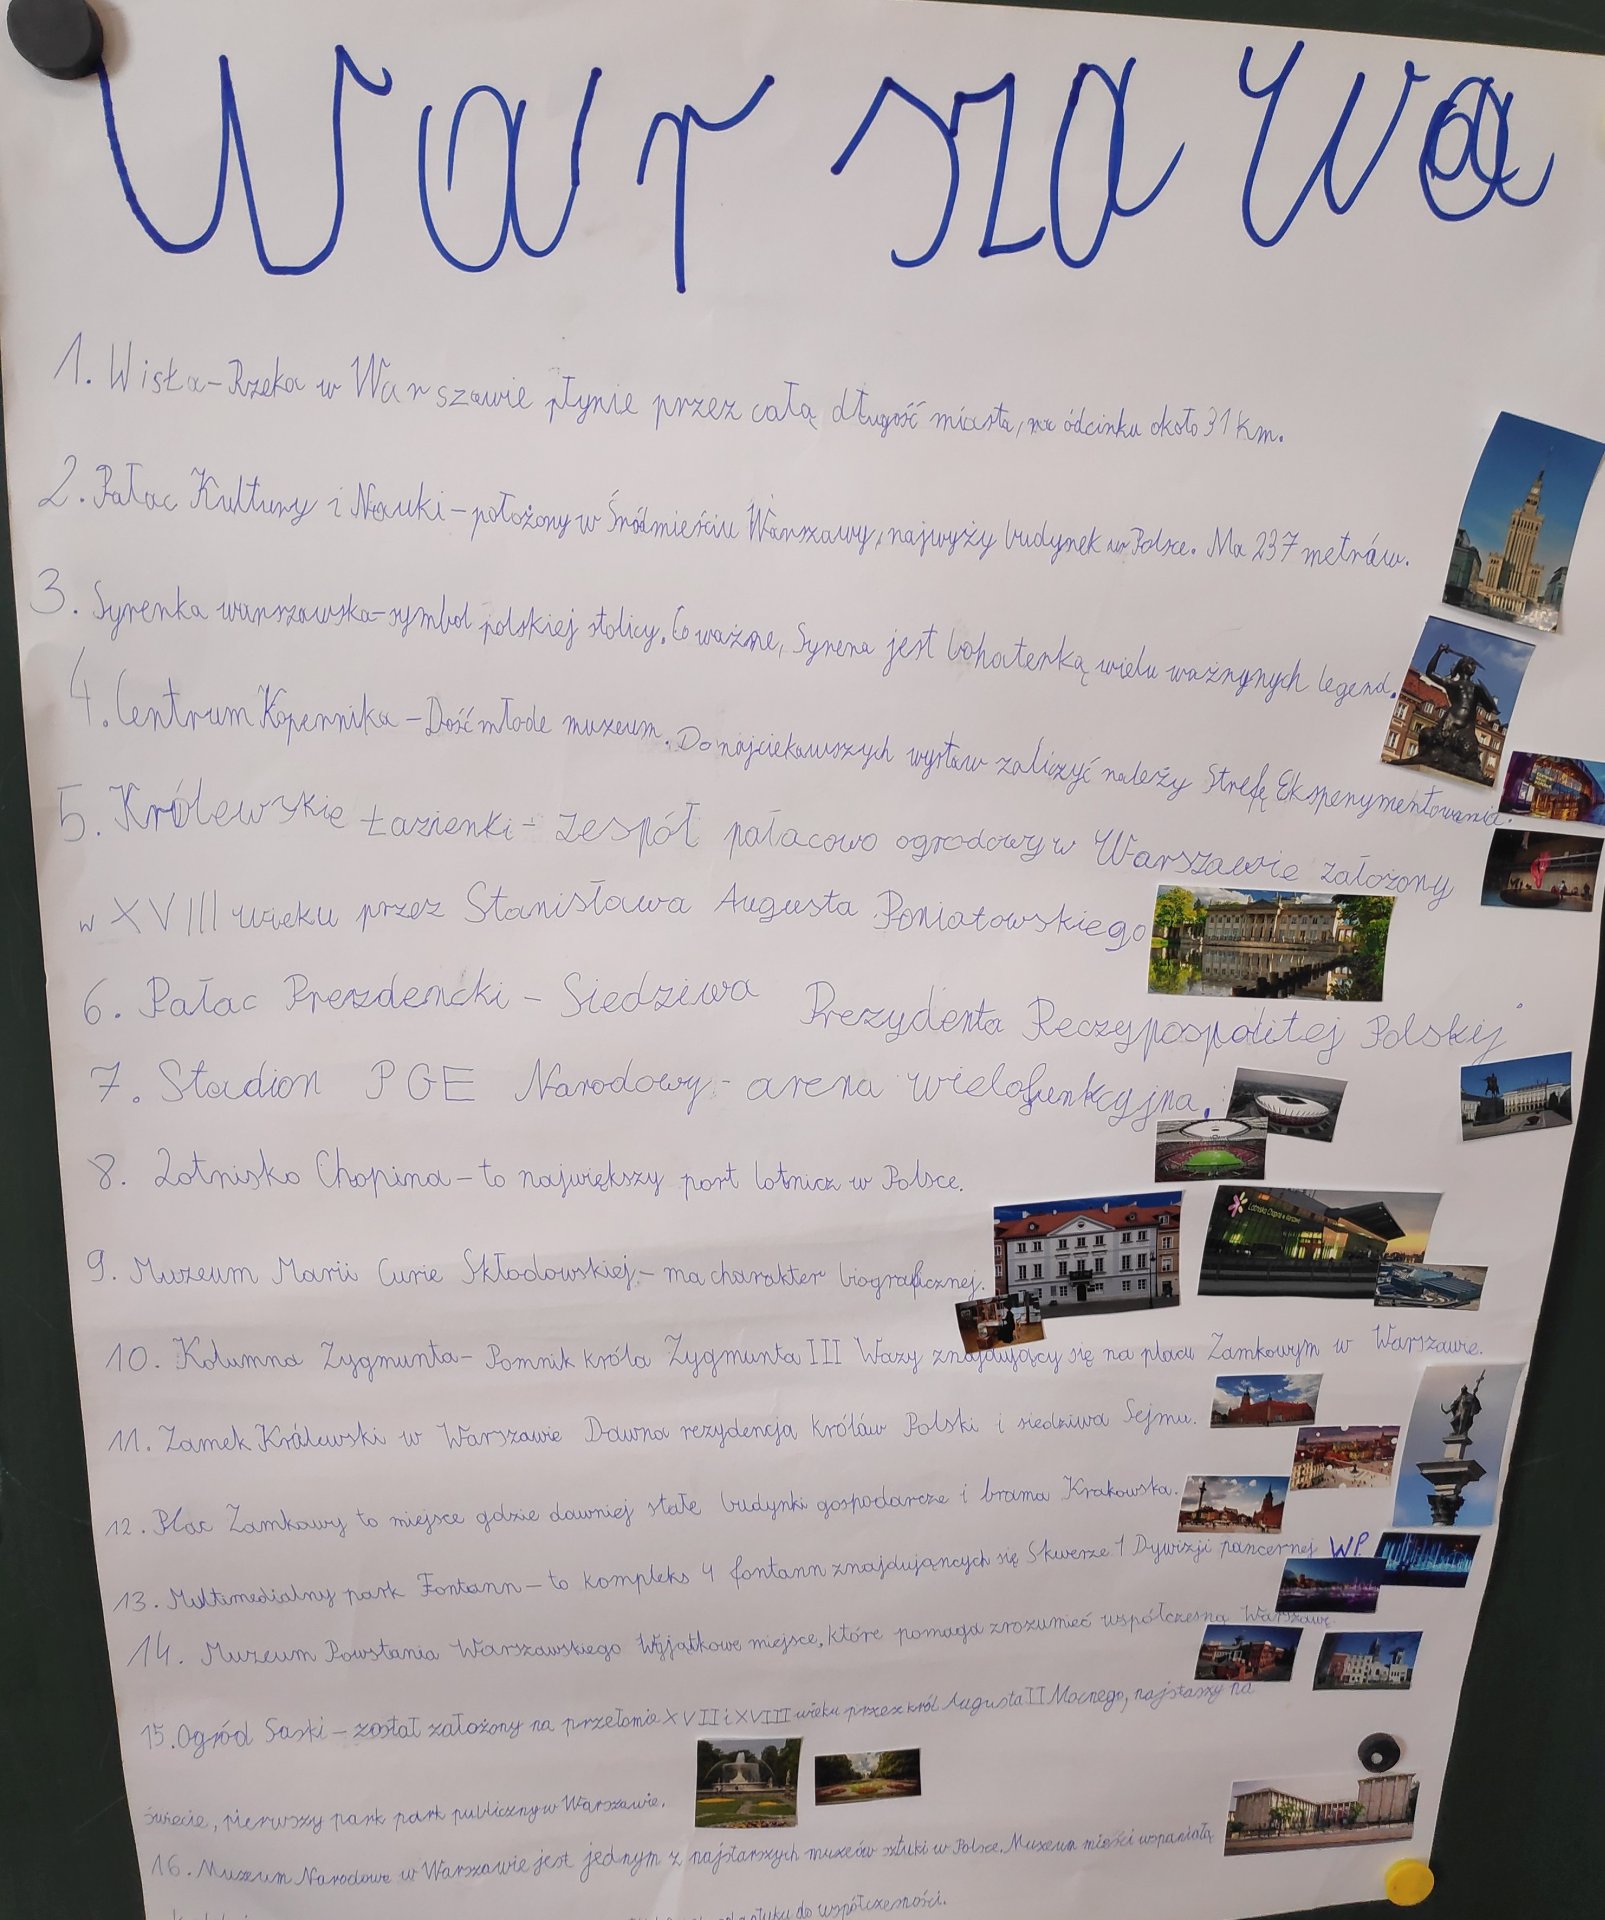 Warszawa
1. Wisła - Rzeka w Warszawie płynie przez całą długość miasta, na odcinku około 31 km.
2. Pałac Kultury i Nauki - położony w Śródmieściu Warszawy, najwyży budynek w Polsce. Ma 237 metrów.
3. Syrenka warszawska - symbol polskiej stolicy. Co ważne, Syrena jest bohaterką wielu ważnynych legend.
4. Centrum Kopernika - Dość młode muzeum. Do najciekawszych wystaw zaliczyć należy Strefę Eksperymentowania.
5. Królewskie Łazienki - zespół pałacowo ogrodowy w Warszawie założony
w XVIII wieku przez Stanisława Augusta Poniatowskiego
6. Pałac Prezdencki - Siedziwa Prezydenta Reczypospolitej Polskij
7. Stadion PGE Narodowy - arena wielofunkcyjna.
8. Lotnisko Chopina - to największy port lotnicz w Polsce.
9. Muzeum Marii Curie Skłodowskiej - ma charakter biograficznej.
10. Kolumna Zygmunta - Pomnik króla Zygmunta III Wazy znajdujący się na placu Zamkowym w Warszawie.
11. Zamek Królewski w Warszawie Dawna rezydencja królów Polski i siedziwa Sejmu.
12. Plac Zamkowy to miejsce gdzie dawniej stałe budynki gospodarcze i brama Krakowska.
13. Multimedialny park Fontann - to kompleks 4 fontann znajdująncych się Skwerze 1 Dywizji pancernej WP.
14. Muzeum Powstania Warszawskiego Wyjątkowe miejsce, które pomaga zrozumieć współczesną Warszawę.
15. Ogród Saski - został założony na przełomie XVII i XVIII wieku przez król Augusta II Mocnego, najstaszy na
świecie, pierwszy park park publiczny w Warszawie.
16. Muzeum Narodowe w Warszawie jest jednym z najstarszych muzeów sztuki w Polsce. Muzeum mieści wspaniałą
do współczesności.